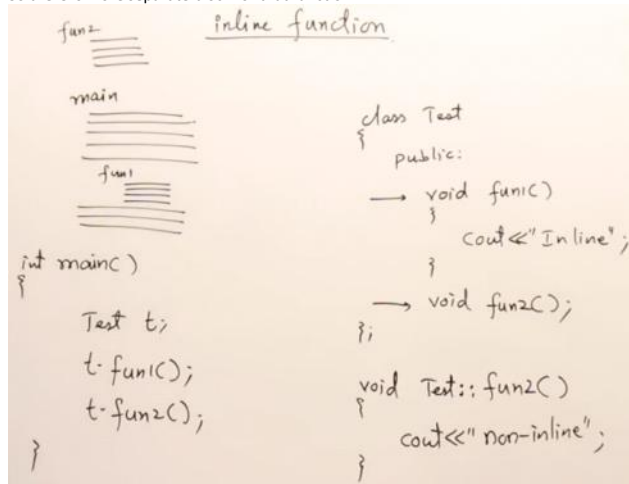 inline function
fun2
main
fun1
int main()
{
Test t;
t.fun1();
t.fun2();
}
class Test
{
public:
→ void fun1()
{
cout<<"Inline";
}
→ void fun2();
};
void Test::fun2()
{
cout<<"non-inline";
}